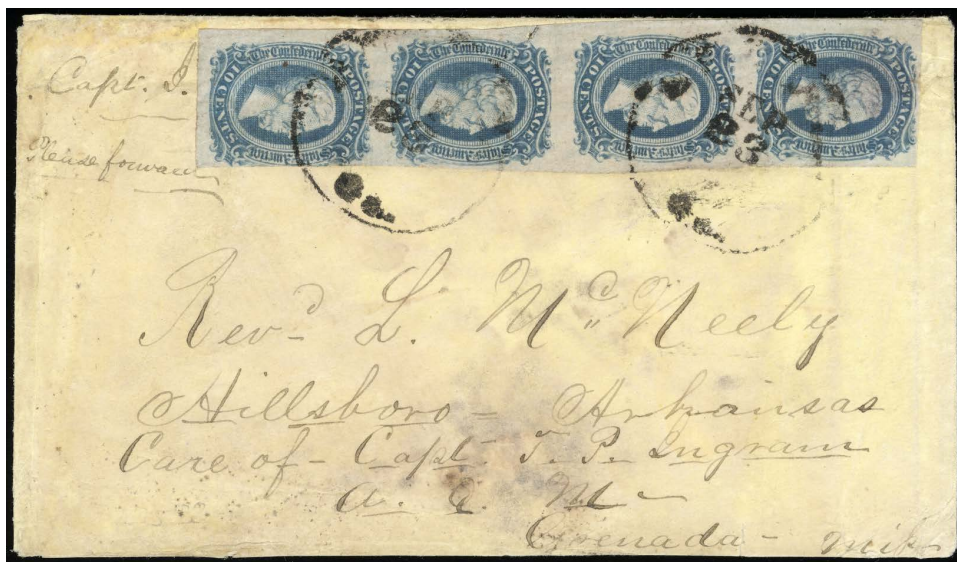 Capt. I.
Please forward
The Confederate States America POSTAGE 10 CENTS
The Confederate States America POSTAGE 10 CENTS
The Confederate States America POSTAGE 10 CENTS
The Confederate States America POSTAGE 10 CENTS
Revd L. Mc Neely
Hillsboro - Arkansas
Care of - Capt. T. P. Ingram
A. Q. M -
Grenada - Miss